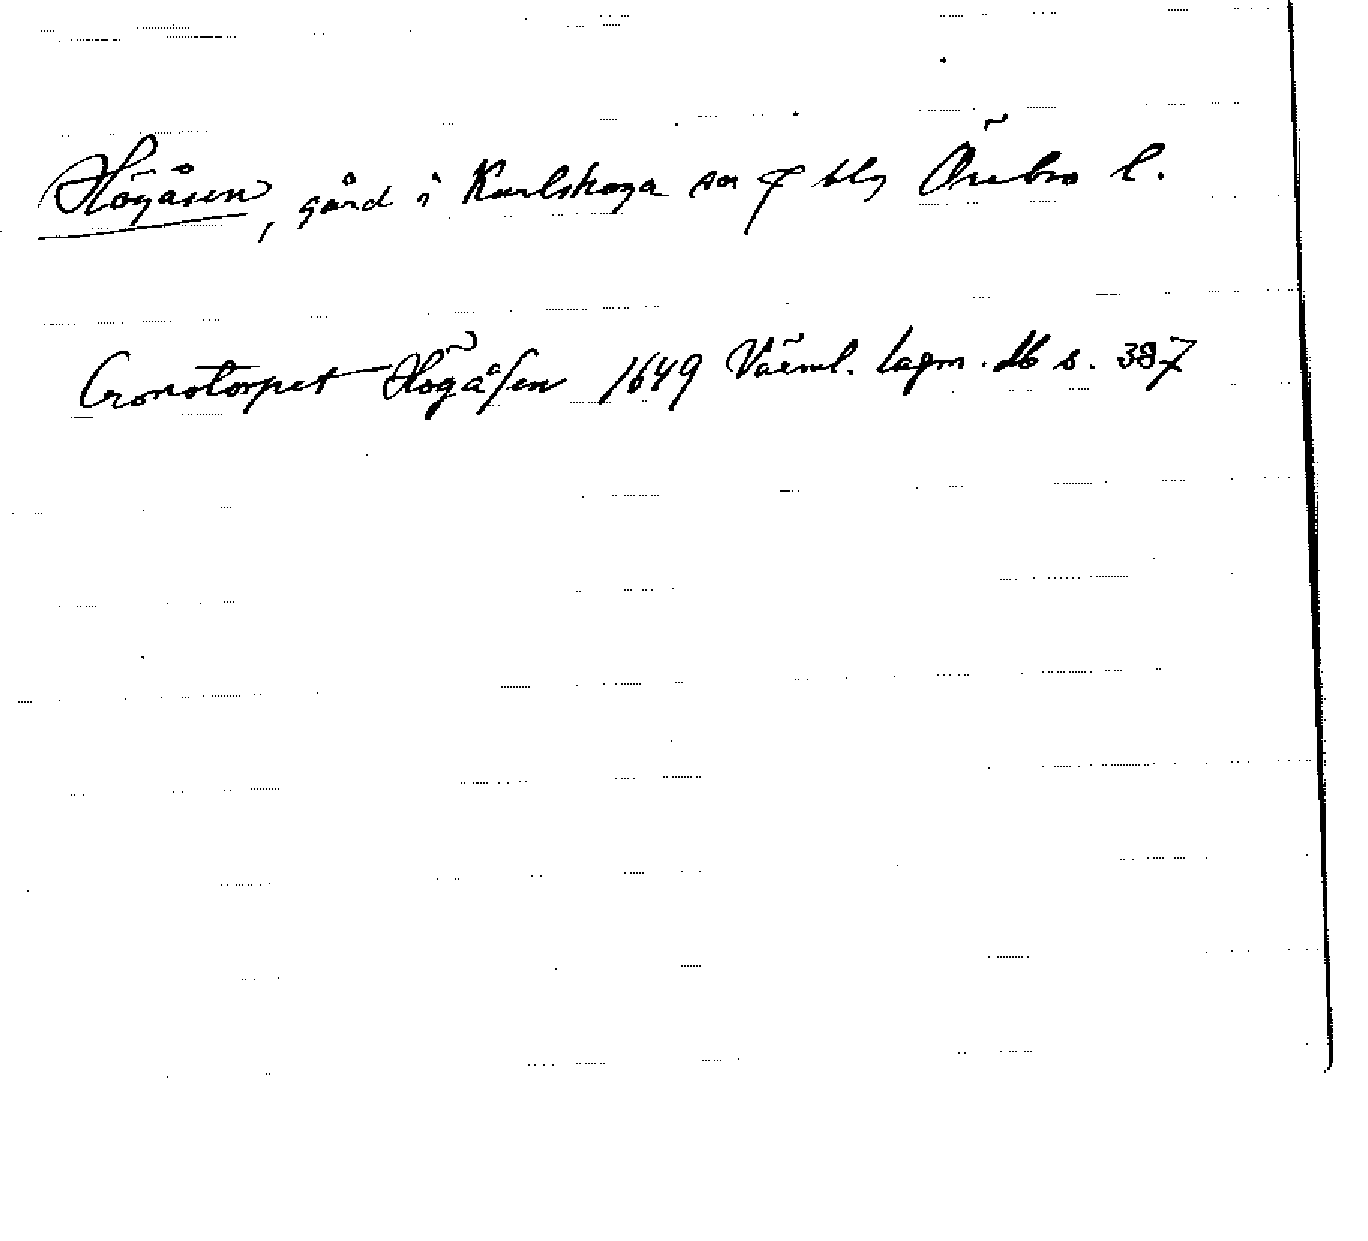 Högåsen, gård i Karlskoga sn o bly Örebro l.
Cronotorpet Högåsen 1649 Värml. lagm. db s. 387